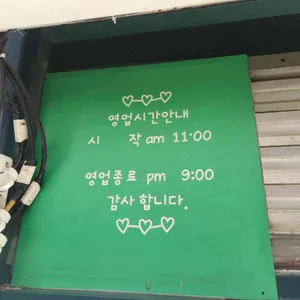 영업시간안내
시 작 am 11:00
영업종료 pm 9:00
감사합니다.